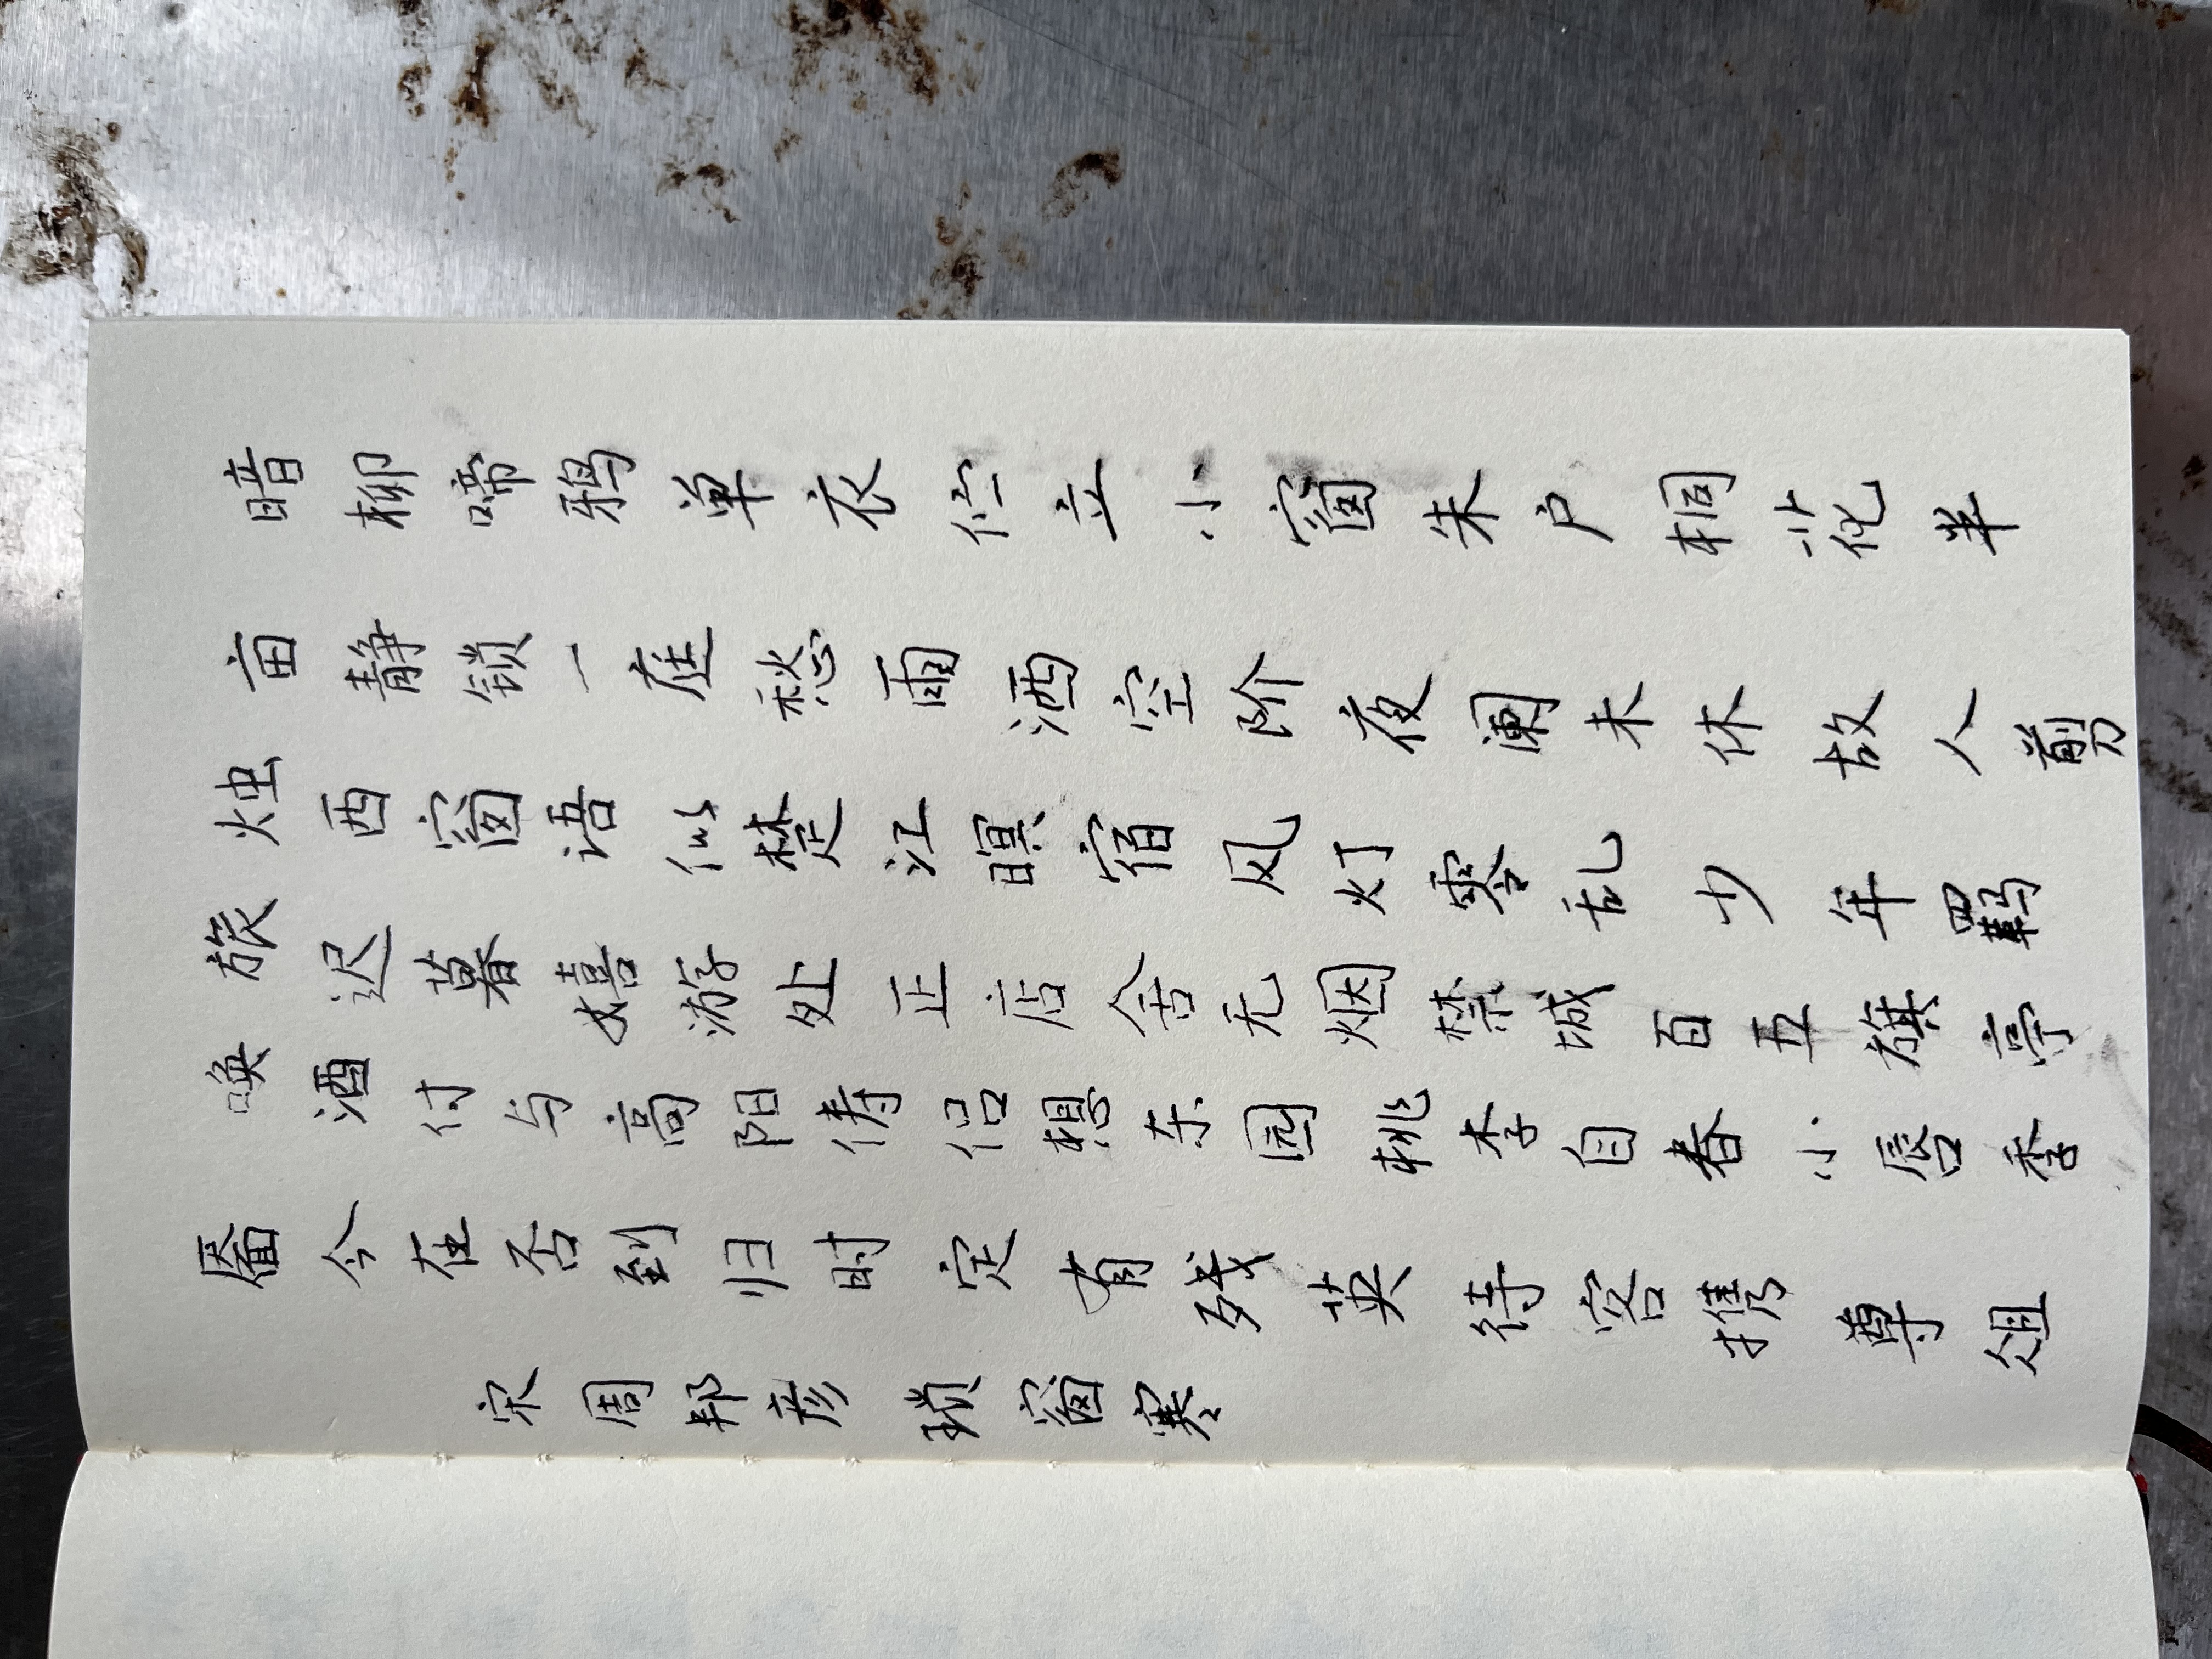 暗柳啼鸦单衣伫立小窗朱户桐花半
亩静锁一庭愁雨洒空阶夜阑未休故人剪
烛西窗语似楚江暝宿风灯零乱少年羁
旅迟暮嬉游处正店舍无烟禁城百五旗亭
唤酒付与高阳俦侣想东园桃李自春小唇秀
靥今在否到归时定有残英待客携尊俎
宋周邦彦锁窗寒